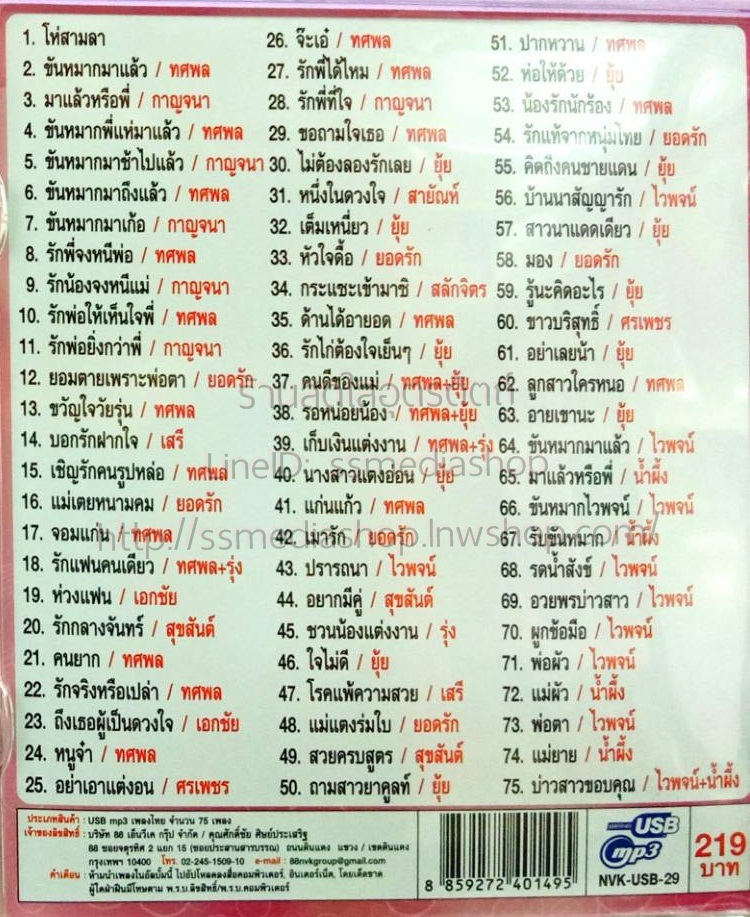 1. โห่สามลา
2. ขันหมากมาแล้ว / ทศพล
3. มาแล้วหรือพี่ / กาญจนา
4. ขันหมากพี่แห่มาแล้ว / ทศพล
5. ขันหมากมาช้าไปแล้ว / กาญจนา
6. ขันหมากมาถึงแล้ว / ทศพล
7. ขันหมากมาเก้อ / กาญจนา
8. รักพี่จงหนีพ่อ / ทศพล
9. รักน้องจงหนีแม่ / กาญจนา
10. รักพ่อให้เห็นใจพี่ / ทศพล
11. รักพ่อยิ่งกว่าพี่ / กาญจนา
12. ยอมตายเพราะพ่อตา / ยอดรัก
13. ขวัญใจวัยรุ่น / ทศพล
14. บอกรักฝากใจ / เสรี
15. เชิญรักคนรูปหล่อ / ทศพล
16. แม่เตยหนามคม / ยอดรัก
17. จอมแก่น / ทศพล
18. รักแฟนคนเดียว / ทศพล+รุ่ง
19. ห่วงแฟน / เอกชัย
20. รักกลางจันทร์ / สุขสันต์
21. คนยาก / ทศพล
22. รักจริงหรือเปล่า / ทศพล
23. ถึงเธอผู้เป็นดวงใจ / เอกชัย
24. หนูจ๋า / ทศพล
25. อย่าเอาแต่งอน / ศรเพชร
26. จ๊ะเอ๋ / ทศพล
27. รักพี่ได้ไหม / ทศพล
28. รักพี่ที่ใจ / กาญจนา
29. ขอถามใจเธอ / ทศพล
30. ไม่ต้องลองรักเลย / ยุ้ย
31. หนึ่งในดวงใจ / สายัณห์
32. เต็มเหนี่ยว / ยุ้ย
33. หัวใจดื้อ / ยอดรัก
34. กระแซะเข้ามาซิ / สลักจิตร
35. ด้านได้อายอด / ทศพล
36. รักไก่ต้องใจเย็นๆ / ยุ้ย
37. คนดีของแม่ / ทศพล+ยุ้ย
38. รอหน่อยน้อง / ทศพล+ยุ้ย
39. เก็บเงินแต่งงาน / ทศพล+รุ่ง
40. นางสาวแตงอ่อน / ยุ้ย
41. แก่นแก้ว / ทศพล
42. เมารัก / ยอดรัก
43. ปรารถนา / ไวพจน์
44. อยากมีคู่ / สุขสันต์
45. ชวนน้องแต่งงาน / รุ่ง
46. ใจไม่ดี / ยุ้ย
47. โรคแพ้ความสวย / เสรี
48. แม่แตงร่มใบ / ยอดรัก
49. สวยครบสูตร / สุขสันต์
50. ถามสาวยาคูลท์ / ยุ้ย
51. ปากหวาน / ทศพล
52. ห่อให้ด้วย / ยุ้ย
53. น้องรักนักร้อง / ทศพล
54. รักแท้จากหนุ่มไทย / ยอดรัก
55. คิดถึงคนชายแดน / ยุ้ย
56. บ้านนาสัญญารัก / ไวพจน์
57. สาวนาแดดเดียว / ยุ้ย
58. มอง / ยอดรัก
59. รู้นะคิดอะไร / ยุ้ย
60. ขาวบริสุทธิ์ / ศรเพชร
61. อย่าเลยน้า / ยุ้ย
62. ลูกสาวใครหนอ / ทศพล
63. อายเขานะ / ยุ้ย
64. ขันหมากมาแล้ว / ไวพจน์
65. มาแล้วหรือพี่ / น้ำผึ้ง
66. ขันหมากไวพจน์ / ไวพจน์
67. รับขันหมาก / น้ำผึ้ง
68. รดน้ำสังข์ / ไวพจน์
69. อวยพรบ่าวสาว / ไวพจน์
70. ผูกข้อมือ / ไวพจน์
71. พ่อผัว / ไวพจน์
72. แม่ผัว / น้ำผึ้ง
73. พ่อตา / ไวพจน์
74. แม่ยาย / น้ำผึ้ง
75. บ่าวสาวขอบคุณ / ไวพจน์+น้ำผึ้ง
LineID: ssmediashop
http://ssmediashop.lnwshop.com/
ประเภทสินค้า : USB mp3 เพลงไทย จำนวน 75 เพลง
เจ้าของลิขสิทธิ์ : บริษัท 88 เอ็นวีเค กรุ๊ป จำกัด / คุณศักดิ์ชัย ศิษย์ประเสริฐ
88 ซอยจตุรทิศ 2 แยก 15 (ซอยประสานสารบรรณ) ถนนดินแดง แขวง / เขตดินแดง
กรุงเทพฯ 10400 โทร. 02-245-1509-10 e-mail : 88nvkgroup@gmail.com
คำเตือน : ห้ามนำเพลงในอัลบั้มนี้ ไปอัปโหลดลงสื่อคอมพิวเตอร์, อินเตอร์เน็ต, โดยเด็ดขาด
ผู้ใดฝ่าฝืนมีโทษตาม พ.ร.บ.ลิขสิทธิ์/พ.ร.บ.คอมพิวเตอร์
8 859272 401495
USB
mp3
NVK-USB-29
219
บาท